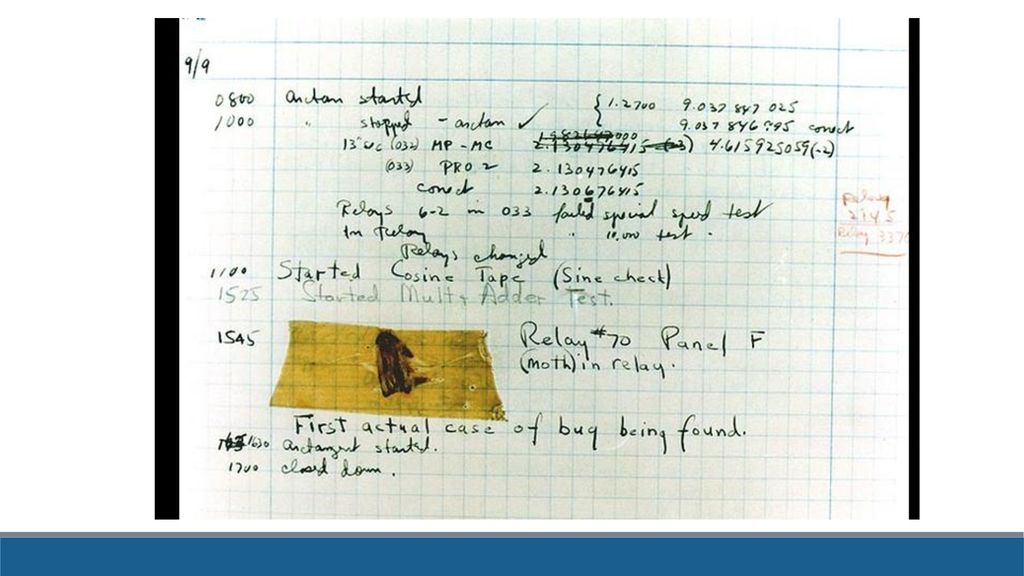 9/9
0800 Antan started { 1.2700 9.037 847 025
1000 " stopped - antan ✓ 9.037 846 795 conect
13"uc (032) MP - MC 2.130476415 4.615925059(-2)
(033) PRO 2 2.130476415
conect 2.130676415
Relays 6-2 in 033 failed special speed test
In Relay " 10,000 test .
Relays changed
Relay
2145
Relay 3370
1100 Started Cosine Tape (Sine check)
1525 Started Mult+ Adder Test.
1545 Relay #70 Panel F
(moth) in relay.
First actual case of bug being found.
1630 antangent started.
1700 closed down.